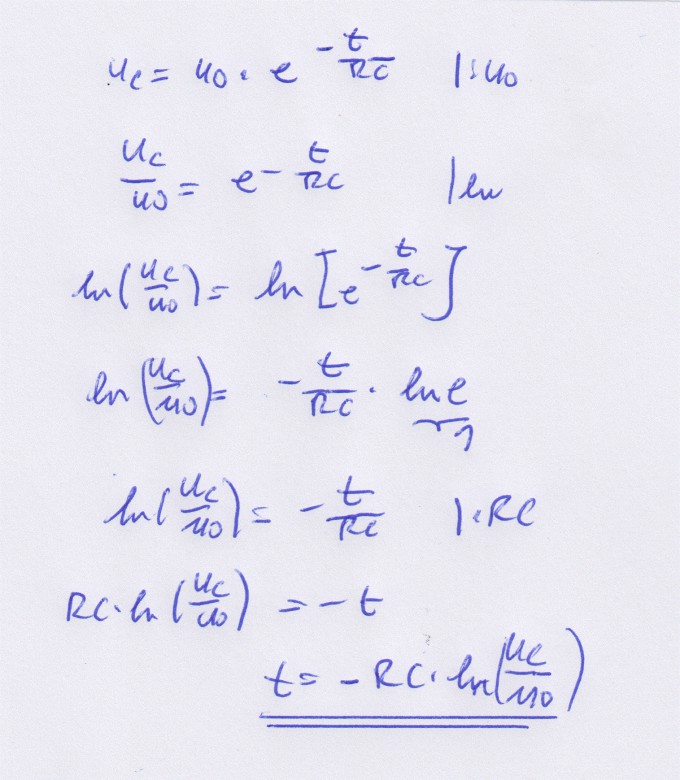 u_c = u_0 · e^{-t/RC} | : u_0
u_c/u_0 = e^{-t/RC} | ln
ln(u_c/u_0) = ln [e^{-t/RC}]
ln(u_c/u_0) = -t/RC · ln e
1
ln(u_c/u_0) = -t/RC | · RC
RC · ln(u_c/u_0) = -t
t = -RC · ln(u_c/u_0)